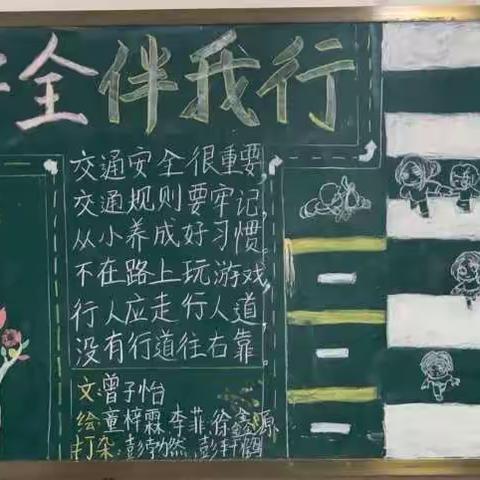 全伴我行
交通安全很重要,
交通规则要牢记,
从小养成好习惯。
不在路上玩游戏,
行人应走行人道,
没有行道往右靠。
文:曾子怡
绘:童梓霖,李菲,徐鑫源
打杂:彭勃然,彭轩鹤